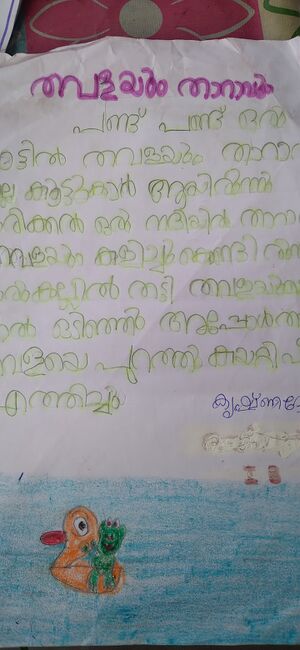 തവളയും താറാവും
പണ്ട് പണ്ട് ഒരു
ട്ടിൽ തവളയും താറാ
ല്ല കൂട്ടുകാർ ആയിരുന്നു
രിക്കൽ ഒരു നദിയിൽ താറാ
തവളയും കളിച്ചു കൊണ്ടി
കല്ലിൽ തട്ടി തവളയുടെ
ൽ ഒടിഞ്ഞു അപ്പോൾ
വളയെ പുറത്തു കയറ്റി
എത്തിച്ചു
കൃഷ്ണ
I B